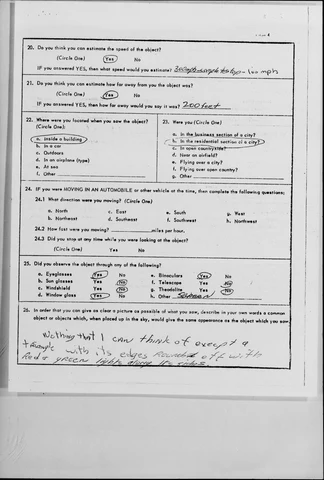 20. Do you think you can estimate the speed of the object?
(Circle One) Yes No
IF you answered YES, then what speed would you estimate? mph
21. Do you think you can estimate how far away from you the object was?
(Circle One) Yes No
IF you answered YES, then how far away would you say it was? 200 feet
22. Where were you located when you saw the object? 23. Were you (Circle One)
(Circle One):
a. Inside a building a. In the business section of a city?
b. In a car b. In the residential section of a city?
c. Outdoors c. In open countryside?
d. In an airplane (type) d. Near an airfield?
e. At sea e. Flying over a city?
f. Other f. Flying over open country?
g. Other
24. IF you were MOVING IN AN AUTOMOBILE or other vehicle at the time, then complete the following questions:
24.1 What direction were you moving? (Circle One)
a. North c. East e. South g. West
b. Northeast d. Southeast f. Southwest h. Northwest
24.2 How fast were you moving? miles per hour.
24.3 Did you stop at any time while you were looking at the object?
(Circle One) Yes No
25. Did you observe the object through any of the following?
a. Eyeglasses Yes No e. Binoculars Yes No
b. Sun glasses Yes No f. Telescope Yes No
c. Windshield Yes No g. Theodolite Yes No
d. Window glass Yes No h. Other Screen
26. In order that you can give as clear a picture as possible of what you saw, describe in your own words a common
object or objects which, when placed up in the sky, would give the same appearance as the object which you saw.
Nothing that I can think of except a
triangle with its edges rounded off with
Red & green lights along its sides.